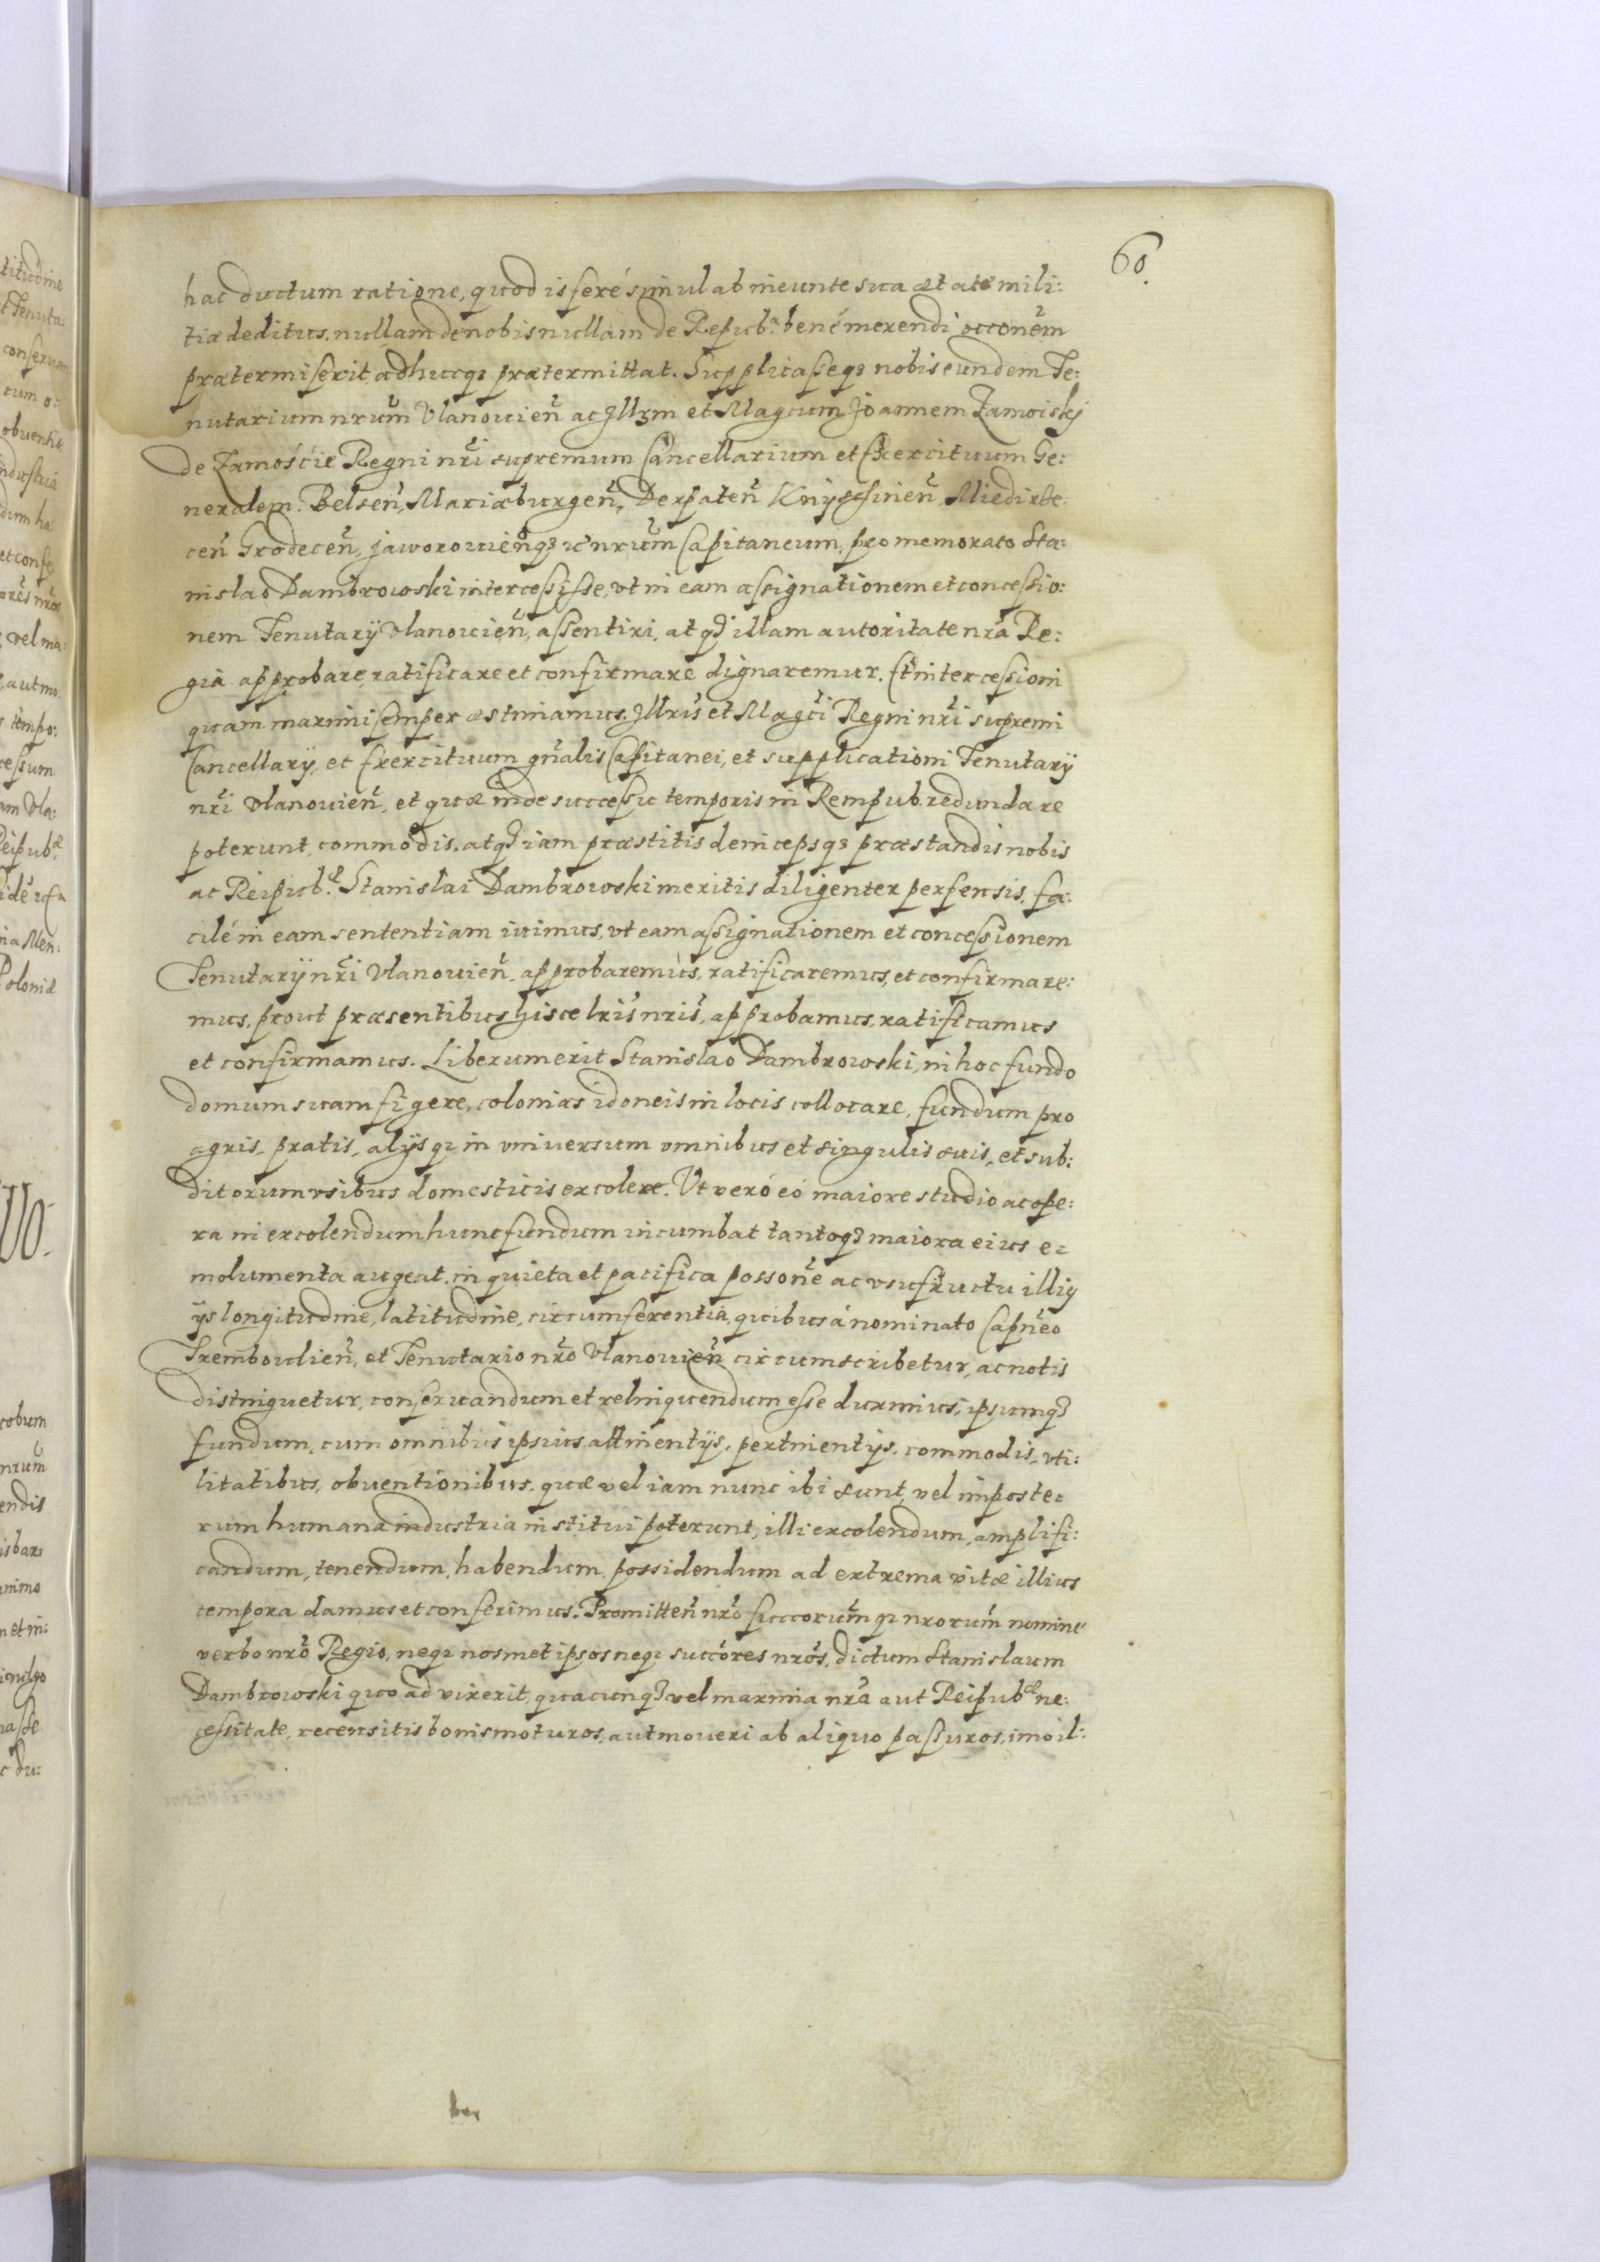 60.
hac ductum ratione, quod is feré simul ab ineunte sua ætate mili:
tiæ deditus, nullam de nobis nullam de Repub: bené merendi occonem̃
prætermiserit adhucqꝫ prætermittat. Supplicasseqꝫ nobis eundem Te:
nutarium nrum̃ Vlanouien̄ ac Illꝫm et Magcum Joannem Zamoiskj
de Zamoście Regni nrĩ supremum Cancellarium et Exercituum Ge:
neralem. Belsen̄, Mariæburgen̄, Derpaten̄ Knyschinen̄ Miedirze:
cen̄ Grodecen̄, Jaworouien̄qꝫ &c nrum̃ Capitaneum, pro memorato Sta:
nislao Dambrowski intercessisse, vt in eam assignationem et concessio:
nem Tenutarÿ Vlanouien̄, assentiri, atqꝫ illam autoritate nrã Re:
gia approbare, ratificare et confirmare dignaremur. Et intercessioni
quam maximi semper æstimamus, Illris̃ et Magcĩ Regni nrĩ supremi
Cancellarÿ, et Exercituum gnãlis Capitanei, et supplicationi Tenutarÿ
nrĩ Vlanouien̄, et quæ inde successu temporis in Rempub. redundare
poterunt, commodis, atqꝫ iam præstitis deincepsqꝫ præstandis nobis
ac Reipub.æ Stanislai Dambrowski meritis diligenter perpensis, fa:
cilé in eam sententiam iuimus, vt eam assignationem et concessionem
Tenutarÿ nrĩ Vlanouien̄, approbaremus, ratificaremus, et confirmare:
mus, prout præsentibus hisce lris̃ nris̃, approbamus, ratificamus
et confirmamus. Liberum erit Stanislao Dambrowski, in hoc fundo
domum suam figere, colonias idoneis in locis collocare, fundum pro
agris, pratis, alÿsqꝫ in vniuersum omnibus et singulis suis, et sub:
ditorum vsibus domesticis excolere. Vt veró eó maiore studio ac ope:
ra in excolendum hunc fundum incumbat tantoqꝫ maiora eius e:
molumenta augeat, in quieta et pacifica possone̅ ac vsufructu illiÿ
ÿs longitudine, latitudine, circumferentia, quibus á nominato Capneõ
Trembowlien̄, et Tenutario nrõ Vlanouien̄ circumscribetur, ac notis
distinguetur, conseruandum et relinquendum esse duximus, ipsumqꝫ
fundum, cum omnibus ipsius attinentÿs, pertinentÿs, commodis, vti:
litatibus, obuentionibus, quæ vel iam nunc ibi sunt, vel imposte:
rum humana industria institui poterunt, illi excolendum, amplifi:
candum, tenendum, habendum, possidendum ad extrema vitæ illius
tempora damus et conferimus. Promitten̄ nrõ succcorum̃qꝫ nrorum̃ nomine
verbo nrõ Regio, neqꝫ nosmet ipsos neqꝫ succores̃ nros̃, dictum Stanislaum
Dambrowski quo ad vixerit, quacunqꝫ vel maxima nrã aut Reipub.æ ne:
cessitate, recensitis bonis moturos, aut moueri ab aliquo passuros, imo il: